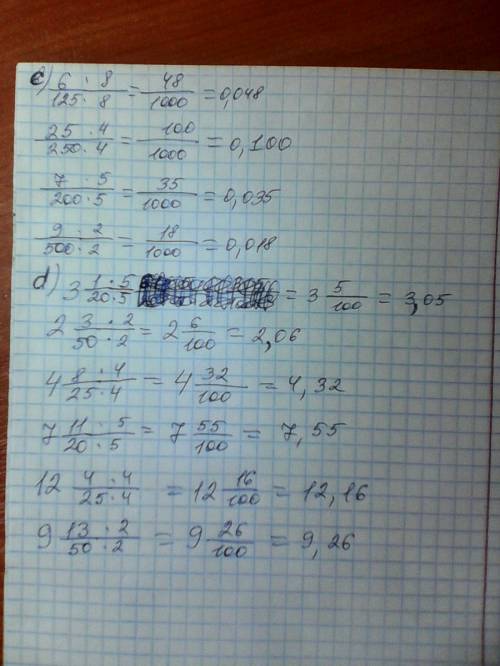 c) 6 · 8 / 125 · 8 = 48 / 1000 = 0,048
25 · 4 / 250 · 4 = 100 / 1000 = 0,100
7 · 5 / 200 · 5 = 35 / 1000 = 0,035
9 · 2 / 500 · 2 = 18 / 1000 = 0,018
d) 3 1 · 5 / 20 · 5 = 3 5 / 100 = 3,05
2 3 · 2 / 50 · 2 = 2 6 / 100 = 2,06
4 8 · 4 / 25 · 4 = 4 32 / 100 = 4,32
7 11 · 5 / 20 · 5 = 7 55 / 100 = 7,55
12 4 · 4 / 25 · 4 = 12 16 / 100 = 12,16
9 13 · 2 / 50 · 2 = 9 26 / 100 = 9,26